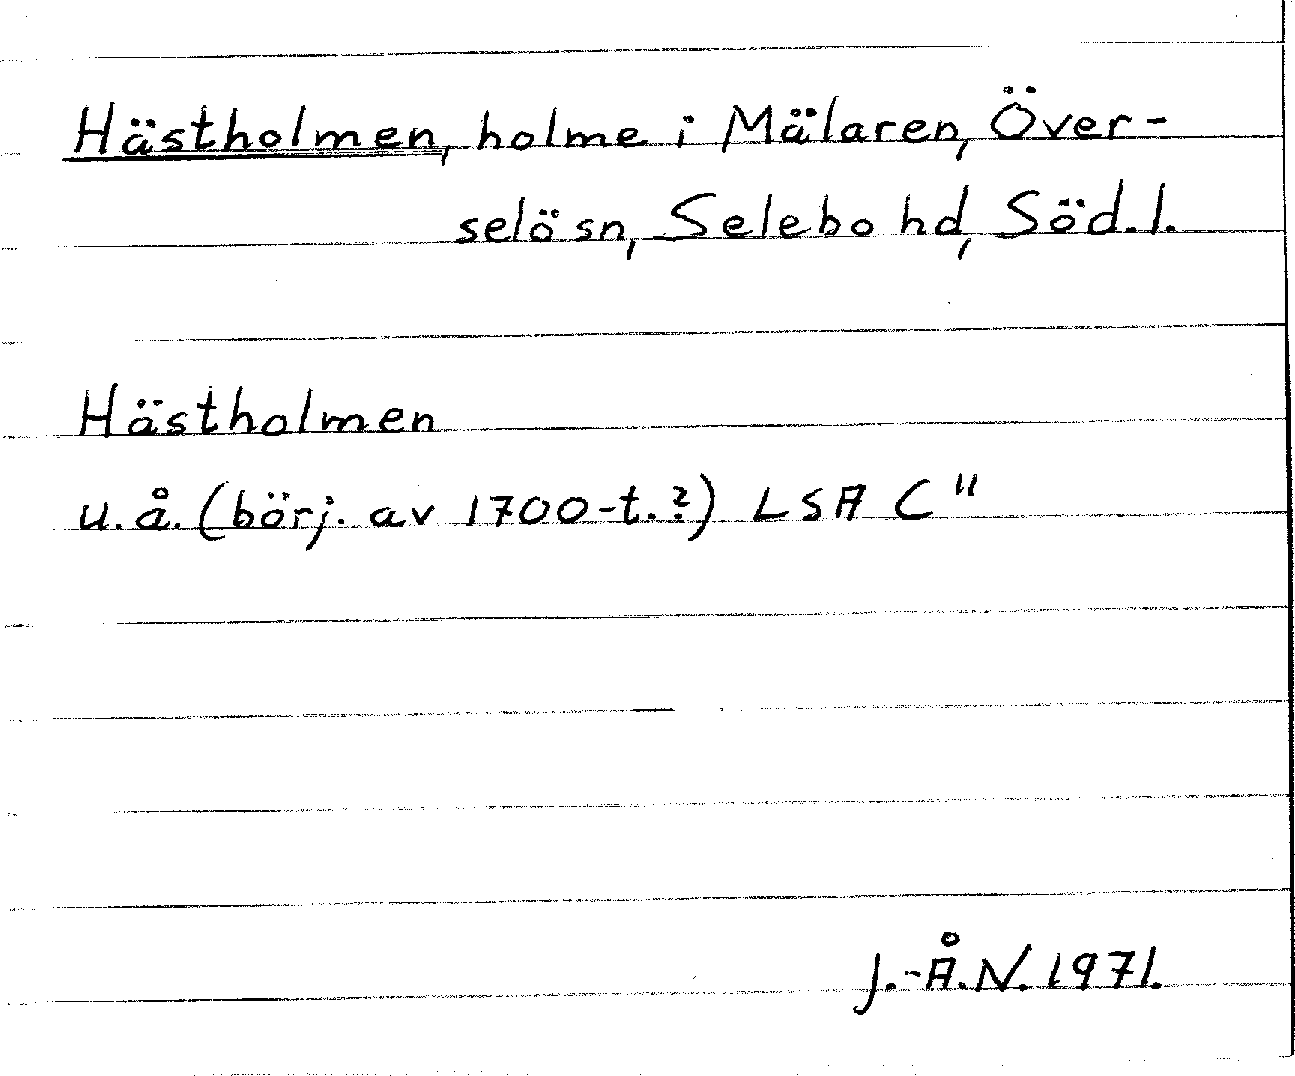 Hästholmen, holme i Mälaren, Över-
selö sn, Selebo hd, Söd.l.
Hästholmen
u.å. (börj. av 1700-t.?) LSA C"
J.-Å.N. 1971.